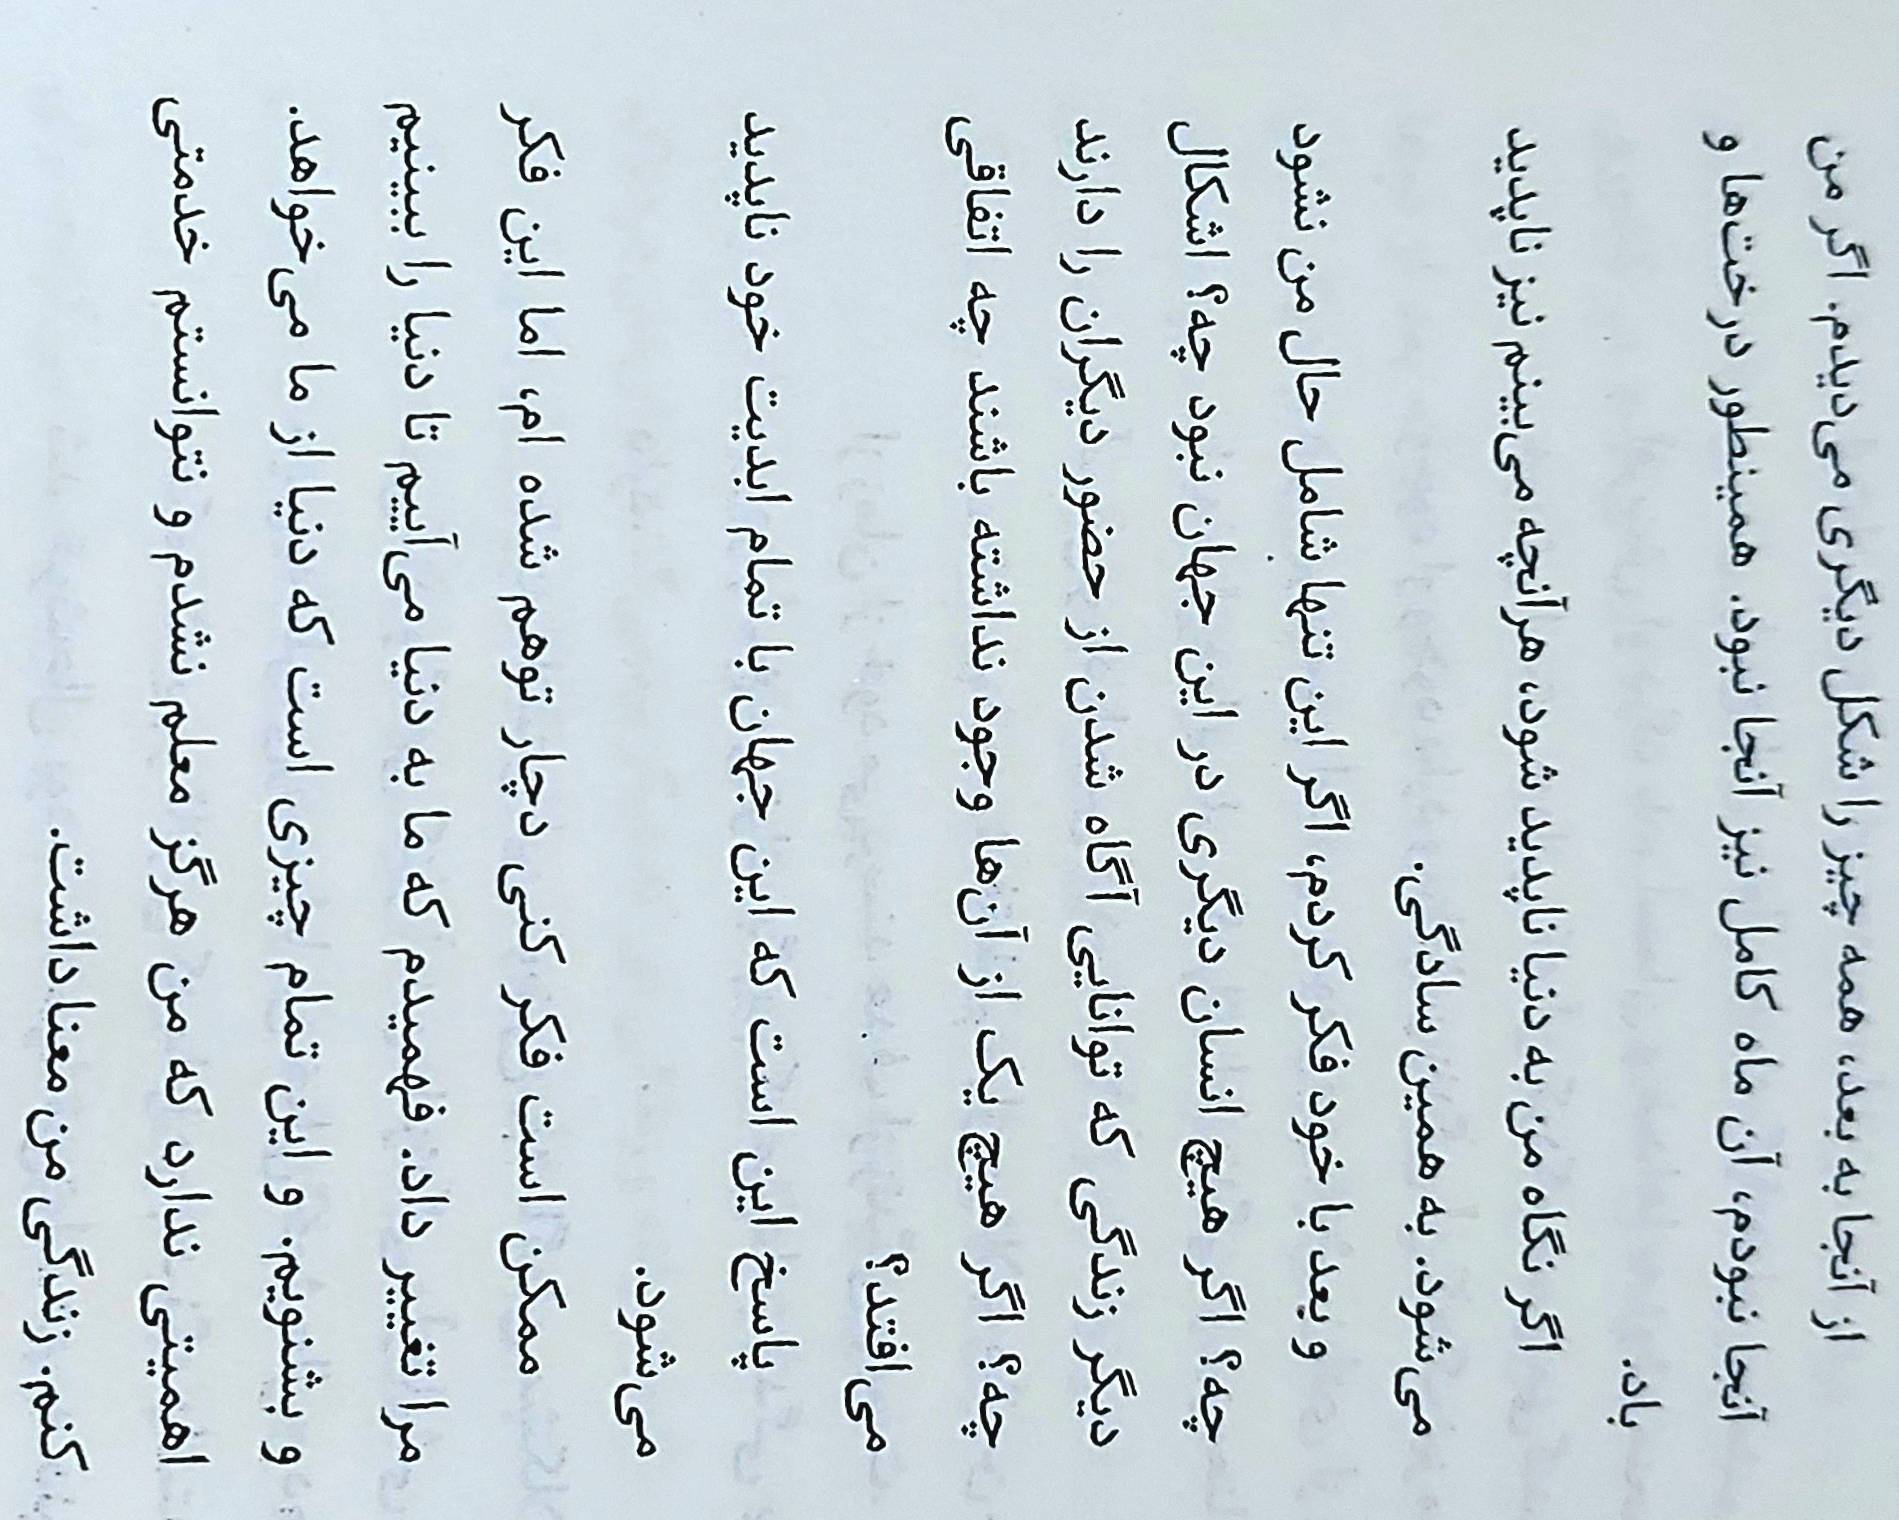 از آنجا به بعد، همه چیز را شکل دیگری می‌دیدم. اگر من
آنجا نبودم، آن ماه کامل نیز آنجا نبود. همینطور درخت‌ها و
باد.
اگر نگاه من به دنیا ناپدید شود، هرآنچه می‌بینم نیز ناپدید
می‌شود. به همین سادگی.
و بعد با خود فکر کردم، اگر این تنها شامل حال من نشود
چه؟ اگر هیچ انسان دیگری در این جهان نبود چه؟ اشکال
دیگر زندگی که توانایی آگاه شدن از حضور دیگران را دارند
چه؟ اگر هیچ یک از آن‌ها وجود نداشته باشند چه اتفاقی
می‌افتد؟
پاسخ این است که این جهان با تمام ابدیت خود ناپدید
می‌شود.
ممکن است فکر کنی دچار توهم شده ام، اما این فکر
مرا تغییر داد. فهمیدم که ما به دنیا می‌آییم تا دنیا را ببینیم
و بشنویم. و این تمام چیزی است که دنیا از ما می‌خواهد.
اهمیتی ندارد که من هرگز معلم نشدم و نتوانستم خدمتی
کنم. زندگی من معنا داشت.